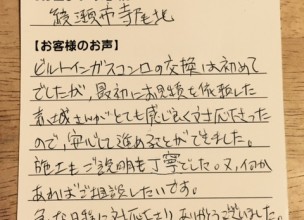 綾瀬市寺尾北
【お客様のお声】
ビルトインガスコンロの交換は初めて
でしたが、最初にお見積を依頼した
さんがとても感じ良く対応下さった
ので、安心して進めることができました。
施工もご説明も丁寧でした。又、何か
あればご相談したいです。
に対応下さりありがとうございました。